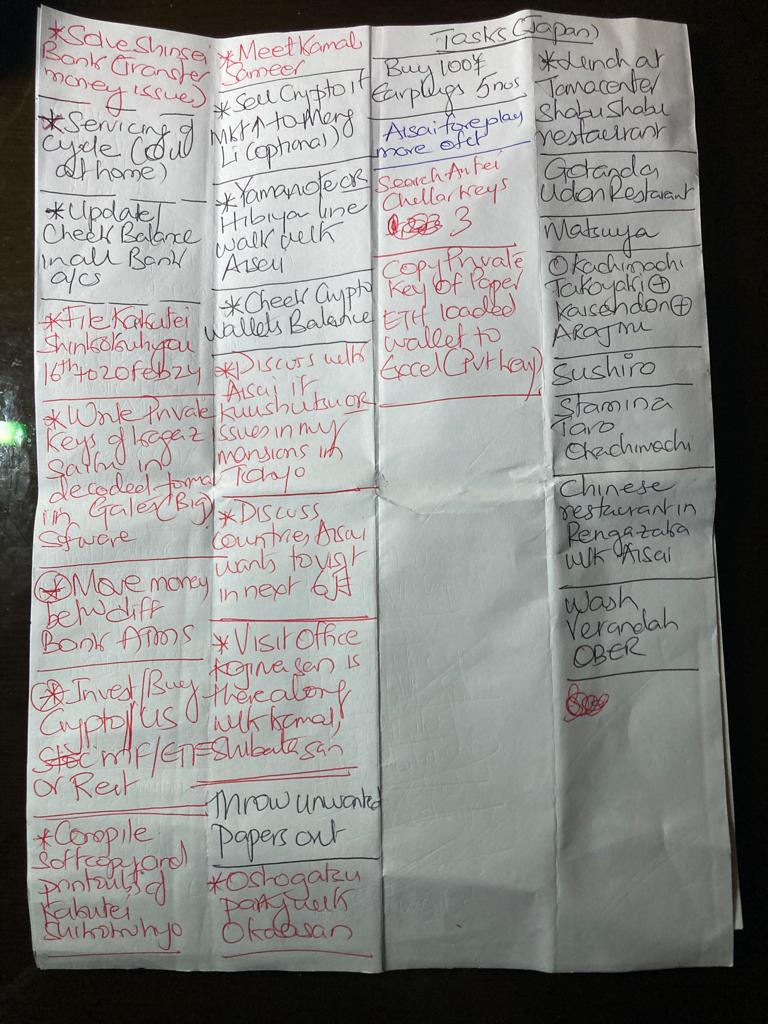 Tasks (Japan)
*Solve Shinsei
Bank (Transfer
money issues)
*Servicing of
Cycle (Oil
at home)
*Update/
Check Balance
in all Bank
a/cs
*File Kakutei
16th to 20 Feb 24
*Write Private
Keys of Kagaz
in
decoded format
in (Big)
Sftware
*Move money
betw diff
Bank ATMs
*Invest/Buy
Crypto/US
MF/ETF
or Reit
*Compile
Softcopy and
printouts of
Kakutei
*Meet Kamal
Sameer
*Sell Crypto if
Mkt ↑ to Meng
Li (optional)
*Yamanote or
Hibiya line
walk with
Aisai
*Check Crypto
Wallets Balance
*Discuss with
Aisai if
Kuushitsu or
issues in my
mansions in
Tokyo
*Discuss
Countries Aisai
wants to visit
in next 6月
*Visit Office
Kojina san is
there along
with Kamal,
Shibata san
Throw unwanted
papers out
*Oshogatsu
party with
Okaasan
Buy 100¥
Earplugs 5 nos
Aisai foreplay
more ofet
Search Antei
Chellar Keys
3
Copy Private
Key of Paper
ETH loaded
wallet to
Excel (Pvt key)
*Lunch at
Tamacenter
Shabu Shabu
restaurant
Gotanda
Udon Restarant
Matsuya
Okachimachi
Takoyaki ⊕
Kaisendon ⊕
Sushiro
Stamina
Taro
Okachimachi
Chinese
restaurant in
with Aisai
Wash
Verandah
OBER